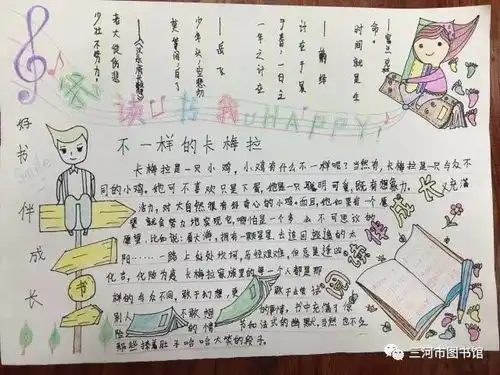 时间就是生
命。
——富兰克林
一年之计在
于春，一日之
计在于晨
——萧绎
莫等闲，白了
少年头，空悲切
——岳飞
少壮不努力，
老大徒伤悲
我读书我HAPPY!
好书伴成长
smile
书
不一样的卡梅拉
卡梅拉是一只小鸡，小鸡有什么不一样呢？当然有，卡梅拉是一只与众不
同的小鸡，她可不喜欢只是下蛋，她是一只聪明可爱，既有想象力，又充满
活力，对大自然很有好奇心的小鸡。而且，他如果有一个愿
望就会努力地实现它，哪怕是一个多么不可思议的
愿望，比如说：看大海，拥有一颗星星，去追回逃逸的太
阳……一路上处处坎坷，历经艰难，但总是逢凶
化吉，化险为夷。卡梅拉家族里的每一个人都是那
样的与众不同，敢于幻想，更敢于去尝试
别人不敢想的事情，书中充满了惊
险的情和法式的幽默，当然也不乏
那些捧着肚子哈哈大笑的段子。
阅读伴成长
三河市图书馆